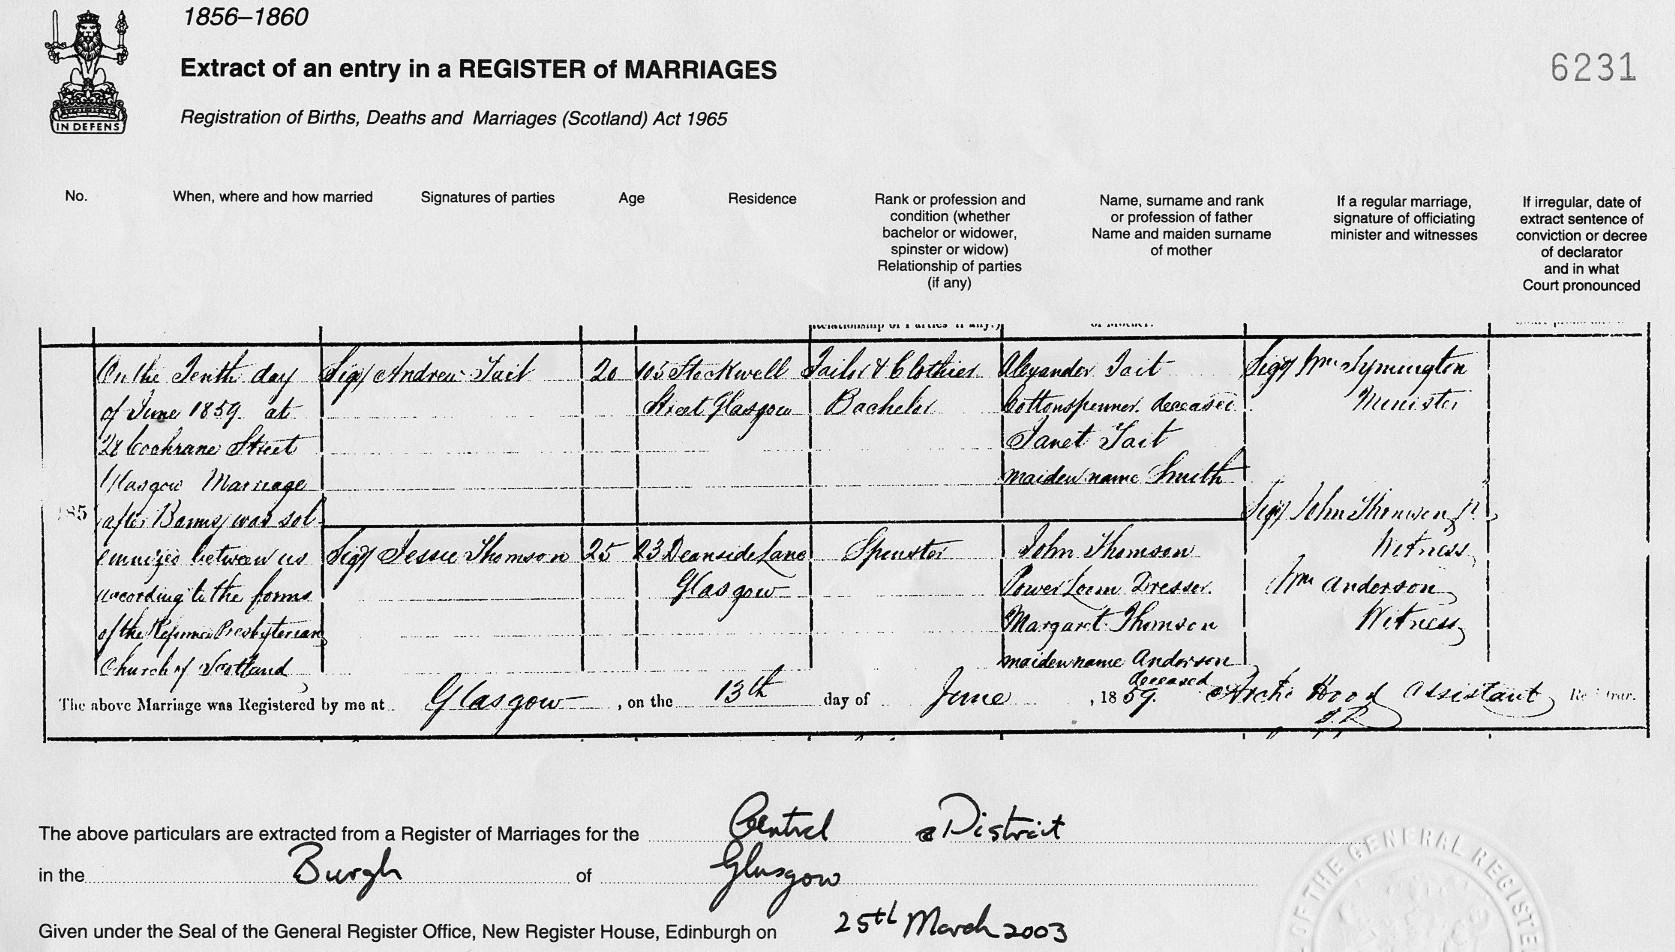 1856–1860
Extract of an entry in a REGISTER of MARRIAGES
6231
Registration of Births, Deaths and Marriages (Scotland) Act 1965
IN DEFENS
No.
When, where and how married
Signatures of parties
Age
Residence
Rank or profession and
condition (whether
bachelor or widower,
spinster or widow)
Relationship of parties
(if any)
Name, surname and rank
or profession of father
Name and maiden surname
of mother
If a regular marriage,
signature of officiating
minister and witnesses
If irregular, date of
extract sentence of
conviction or decree
of declarator
and in what
Court pronounced
Relationship of Parties if any.)
or Mother.
185
On the Tenth day
of June 1859. at
28 Cochrane Street
Glasgow Marriage
after Banns, was sol
emnized between us
according to the forms
of the Reformed Presbyterian
Church of Scotland
Sigd Andrew Tait
20
105 Stockwell
Street Glasgow
Tailor & Clothier
Bachelor
Alexander Tait
Cottonspinner. deceased
Janet Tait
maiden name Smith
Sigd Wm Symington
Minister
Sigd Jessie Thomson
25
23 Deanside Lane
Glasgow
Spinster
John Thomson
Power Loom Dresser.
Margaret Thomson
maiden name Anderson
deceased
Sigd John Thomson Jr.
Witness
Wm Anderson
Witness
The above Marriage was Registered by me at Glasgow, on the 13th day of June, 1859. Archd Hood Assistant Registrar.
The above particulars are extracted from a Register of Marriages for the Central District
in the Burgh of Glasgow
Given under the Seal of the General Register Office, New Register House, Edinburgh on 25th March 2003
OF THE GENERAL REGISTE